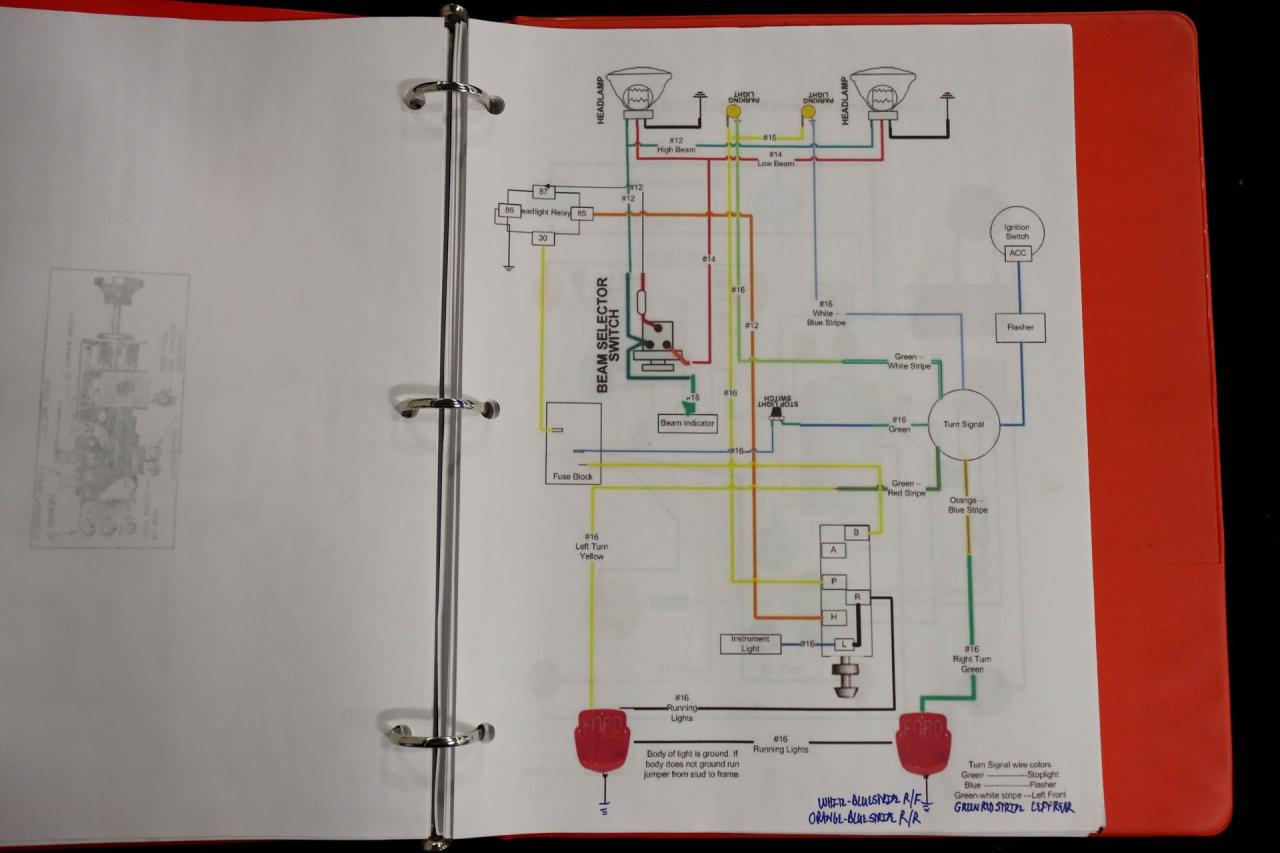 HEADLAMP
PARKING
LIGHT
PARKING
LIGHT
HEADLAMP
#16
#12
High Beam
#14
Low Beam
87
#12
#12
86
eadlight Relay
85
30
Ignition
Switch
ACC
#14
#16
#16
White -
Blue Stripe
#12
Flasher
BEAM SELECTOR
SWITCH
Green -
White Stripe
#16
#16
STOP LIGHT
SWITCH
Beam Indicator
#16
Green
Turn Signal
#16
Fuse Block
Green -
Red Stripe
Orange -
Blue Stripe
#16
Left Turn
Yellow
B
A
P
R
H
Instrument
Light
#16
L
#16
Right Turn
Green
#16
Running
Lights
FORD
FORD
#16
Running Lights
Body of light is ground. If
body does not ground run
jumper from stud to frame.
Turn Signal wire colors
Green ------------Stoplight
Blue ---------------Flasher
Green-white stripe ---Left Front
WHITE-BLUESTRIPE R/F
GREENREDSTRIPE LEFTREAR
ORANGE-BLUESTRIPE R/R